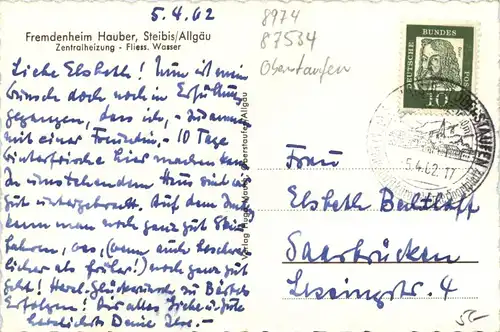 5.4.62
8974
87534
Oberstaufen
Fremdenheim Hauber, Steibis/Allgäu
Zentralheizung - Fliess. Wasser
Liebe Elsbeth! Nun ist mein
Wunsch doch noch in Erfüllung
gegangen, dass ich, - zusammen
mit einer Freundin, - 10 Tage
Winterfrische hier machen kann.
In umstehendem Haus sind wir
gut untergebracht. Auf dem
kann man noch ganz gut Ski
fahren, was, (wenn auch beschwer-
licher als früher!) noch ganz gut
geht! Herzl. Glückwünsche zu
Erfolgen! Dir alles Liebe u. Gute
herzlichst Deine
Verlag Hugo Oberstaufen/Allgäu
DEUTSCHE BUNDES POST
10
OBERSTAUFEN
5.4.62.17
Frau
Elsbeth
Saarbrücken
Lessingstr. 4